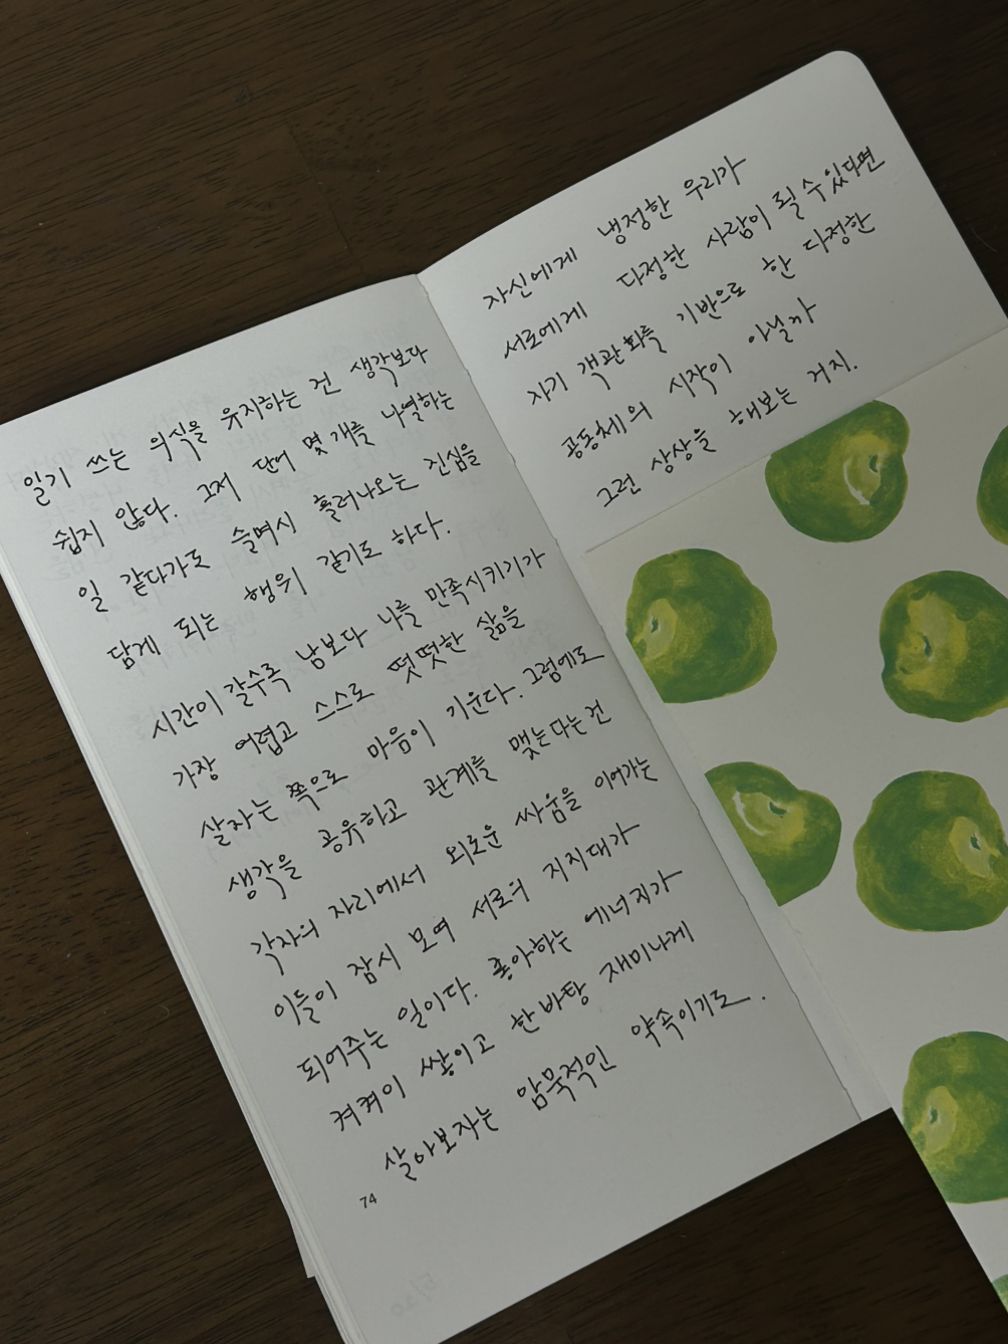 일기 쓰는 의식을 유지하는 건 생각보다
쉽지 않다. 그저 단어 몇 개를 나열하는
일 같다가도 슬며시 흘러나오는 진심을
담게 되는 행위 같기도 하다.
시간이 갈수록 남보다 나를 만족시키기가
가장 어렵고 스스로 떳떳한 삶을
살자는 쪽으로 마음이 기운다. 그럼에도
생각을 공유하고 관계를 맺는다는 건
각자의 자리에서 외로운 싸움을 이어가는
이들이 잠시 모여 서로의 지지대가
되어주는 일이다. 좋아하는 에너지가
켜켜이 쌓이고 한바탕 재미나게
살아보자는 암묵적인 약속이기도.
74
자신에게 냉정한 우리가
서로에게 다정한 사람이 될 수 있다면
자기 객관화를 기반으로 한 다정한
공동체의 시작이 아닐까
그런 상상을 해보는 거지.